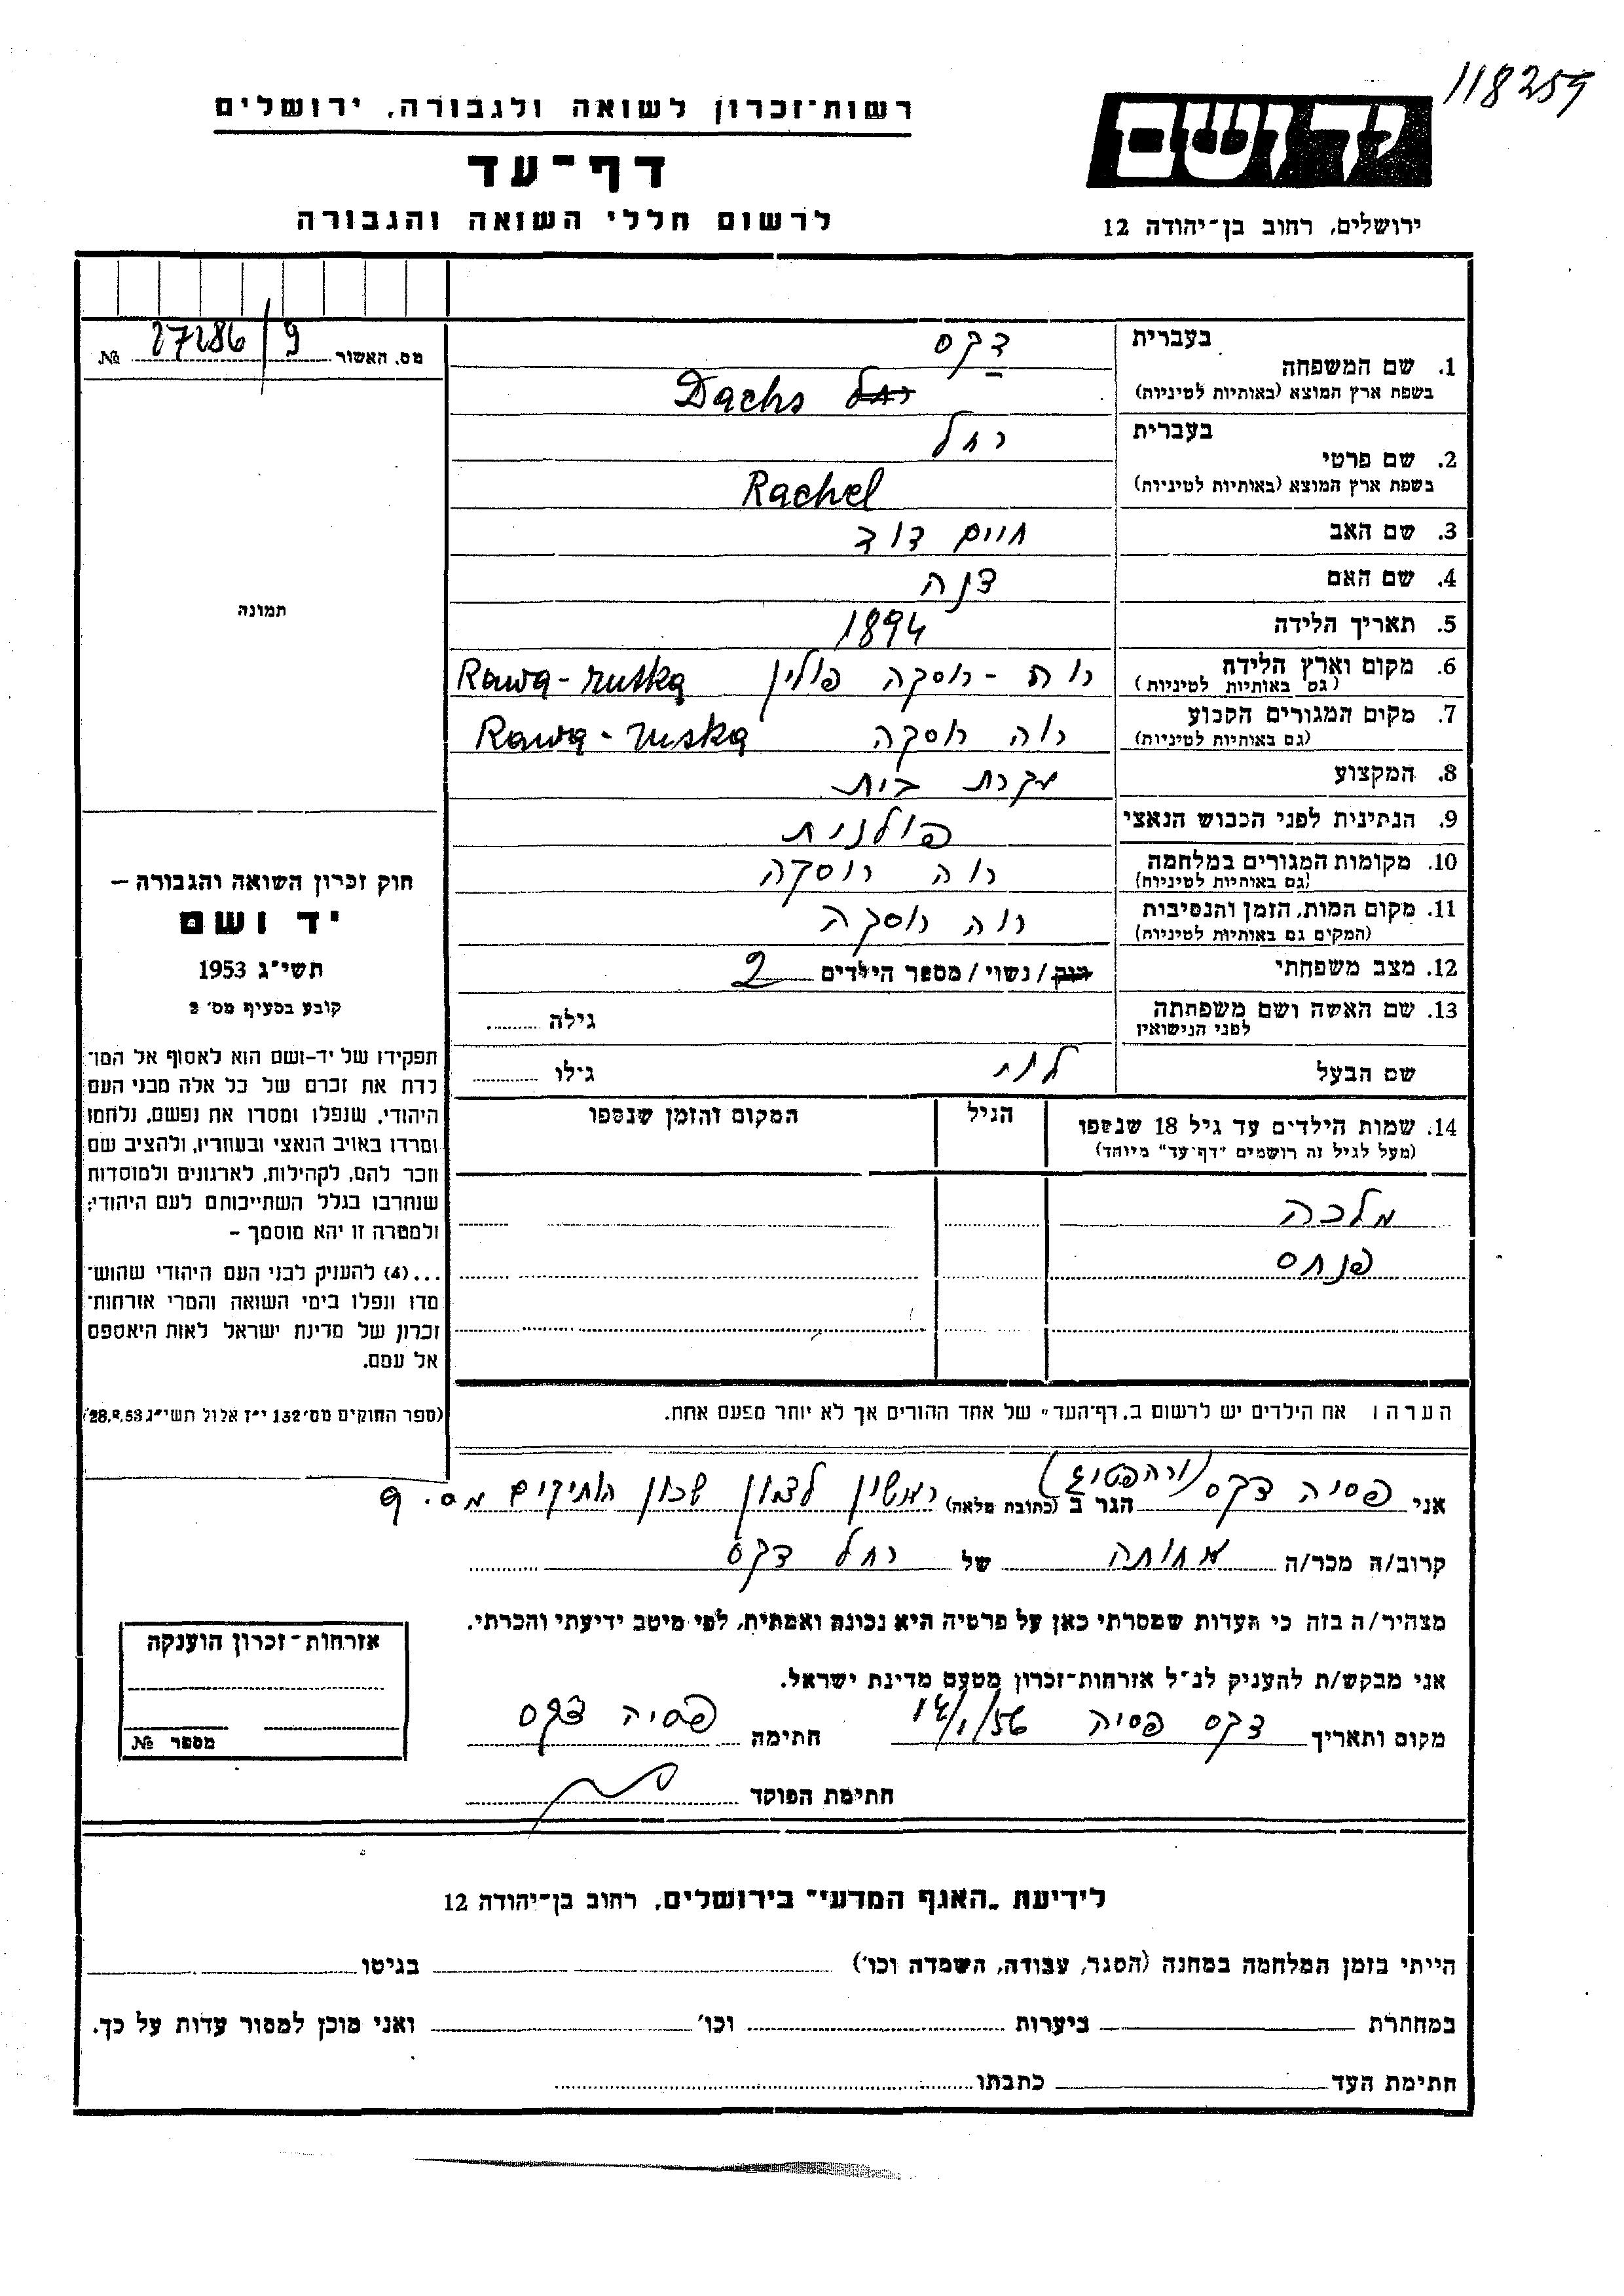 118259
רשות־זכרון לשואה ולגבורה, ירושלים
יד ושם
דף־עד
לרשום חללי השואה והגבורה
ירושלים, רחוב בן־יהודה 12
מס. האשור 27286/9 №
בעברית דקס
1. שם המשפחה
בשפת ארץ המוצא (באותיות לטיניות) רחל Dachs
בעברית רחל
2. שם פרטי
בשפת ארץ המוצא (באותיות לטיניות) Rachel
3. שם האב חיים דוד
4. שם האם
5. תאריך הלידה 1894
6. מקום וארץ הלידה רוה - רוסקה פולין Rawa-ruska
(גם באותיות לטיניות)
7. מקום המגורים הקבוע רוה רוסקה Rawa-ruska
(גם באותיות לטיניות)
8. המקצוע עקרת בית
9. הנתינות לפני הכבוש הנאצי פולנית
10. מקומות המגורים במלחמה רוה רוסקה
(גם באותיות לטיניות)
11. מקום המות, הזמן והנסיבות רוה רוסקה
(המקום גם באותיות לטיניות)
12. מצב משפחתי רווק / נשוי / מספר הילדים 2
13. שם האשה ושם משפחתה גילה
לפני הנישואין
שם הבעל גילו
14. שמות הילדים עד גיל 18 שנספו הגיל המקום והזמן שנספו
(מעל לגיל זה רושמים "דף־עד" מיוחד)
מלכה
פנחס
הערה: את הילדים יש לרשום ב„דף־העד" של אחד ההורים אך לא יותר מפעם אחת.
תמונה
חוק זכרון השואה והגבורה –
יד ושם
תשי"ג 1953
קובע בסעיף מס' 2
תפקידו של יד-ושם הוא לאסוף אל המו־
לדת את זכרם של כל אלה מבני העם
היהודי, שנפלו ומסרו את נפשם, נלחמו
ומרדו באויב הנאצי ובעוזריו, ולהציב שם
וזכר להם, לקהילות, לארגונים ולמוסדות
שנחרבו בגלל השתייכותם לעם היהודי;
ולמטרה זו יהא מוסמך –
...(4) להעניק לבני העם היהודי שהוש־
מדו ונפלו בימי השואה והמרי אזרחות־
זכרון של מדינת ישראל לאות היאספם
אל עמם.
(ספר החוקים מס' 132 י"ז אלול תשי"ג 28.8.53)
אני פסיה דקס הגר ב (כתובת מלאה) ראשון לציון שכון הותיקים מס. 9
קרוב/ה מכר/ה מחותה של רחל דקס
מצהיר/ה בזה כי העדות שמסרתי כאן על פרטיה היא נכונה ואמתית, לפי מיטב ידיעתי והכרתי.
אני מבקש/ת להעניק לנ"ל אזרחות־זכרון מטעם מדינת ישראל.
מקום ותאריך דקס פסיה 14/1/56 חתימה פסיה דקס
חתימת הפוקד
אזרחות־זכרון הוענקה
מספר №
לידיעת „האגף המדעי" בירושלים, רחוב בן־יהודה 12
הייתי בזמן המלחמה במחנה (הסגר, עבודה, השמדה וכו') בגיטו
במחתרת ביערות וכו' ואני מוכן למסור עדות על כך.
חתימת העד כתבתו